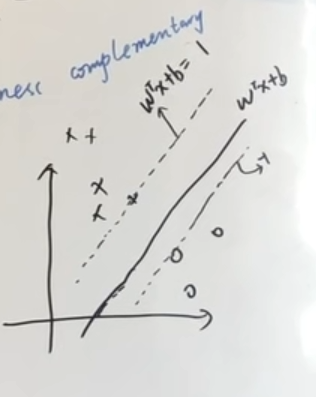 nesc complementary
wᵀx+b= 1
wᵀx+b
-1
x +
x
x
x
o
o
o